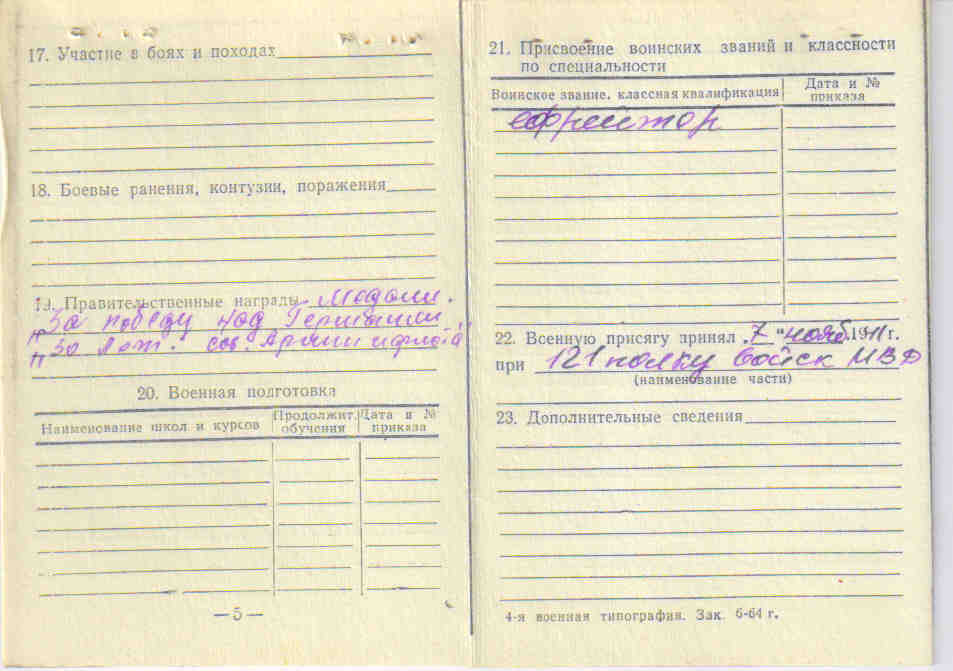 17. Участие в боях и походах
18. Боевые ранения, контузии, поражения
19. Правительственные награды Медали.
"За победу над Германии
"30 лет. сов. Армии и флота"
20. Военная подготовка
Наименование школ и курсов
Продолжит. обучения
Дата и № приказа
—5—
21. Присвоение воинских званий и классности
по специальности
Воинское звание, классная квалификация
Дата и № приказа
ефрейтор
22. Военную присягу принял „7 " нояб. 19 г.
при 121 полку войск МВД
(наименование части)
23. Дополнительные сведения
4-я военная типография. Зак. 6-64 г.